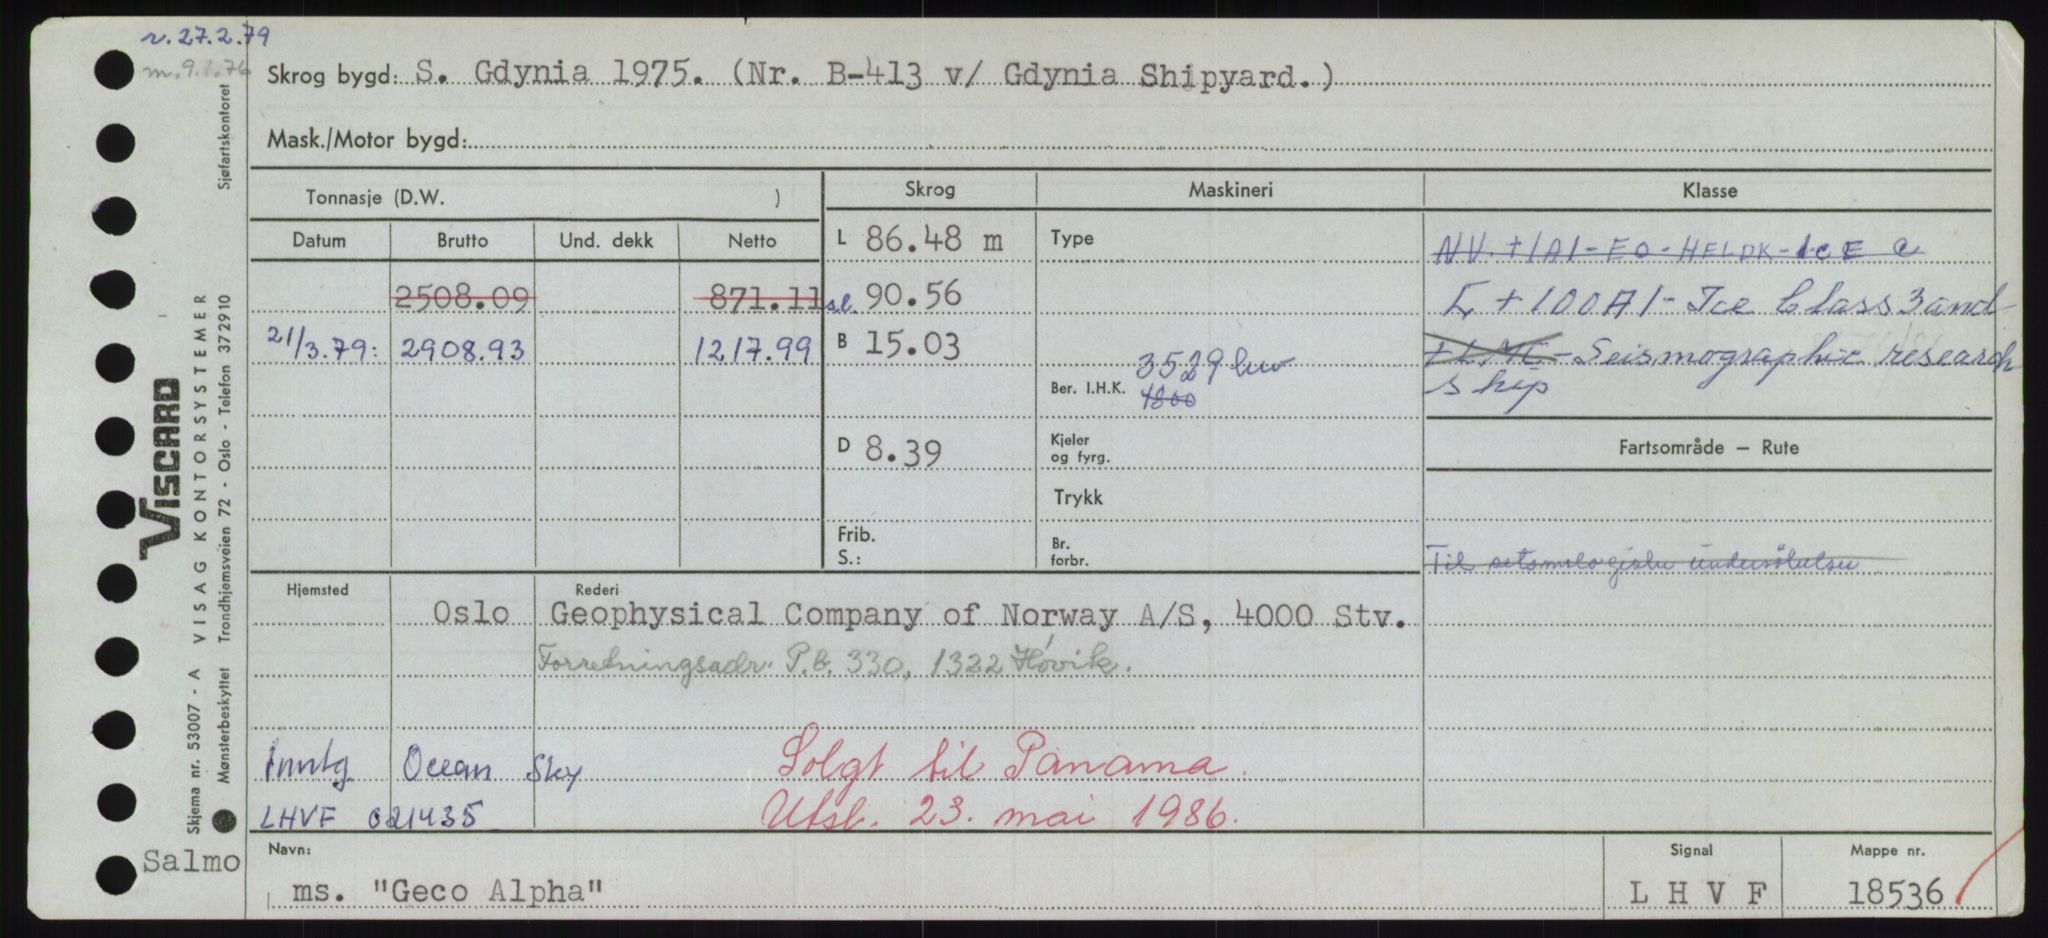 r. 27.2.79
m. 9.1.76
Skrog bygd: S. Gdynia 1975. (Nr. B-413 v/ Gdynia Shipyard.)
Mask./Motor bygd:
Tonnasje (D.W. )
Skrog
Maskineri
Klasse
Datum
Brutto
Und. dekk
Netto
L 86.48 m
Type
NV. +1A1-EO-HELDK-ICE C
2508.09
871.11
s.l. 90.56
+100A1 - Ice Class 3 and
21/3.79: 2908.93
1217.99
B 15.03
+LMC - Seismographic research
ship
3529
Ber. I.H.K. 4800
D 8.39
Kjeler og fyrg.
Fartsområde – Rute
Trykk
Frib. S.:
Br. forbr.
Til
Hjemsted
Rederi
Oslo
Geophysical Company of Norway A/S, 4000 Stv.
Forretningsadr. P.b. 330, 1322 Høvik.
Inntg Ocean Sky
Solgt til Panama.
LHVF 021435
Utsl. 23. mai 1986.
Salmo
Navn:
ms. "Geco Alpha"
Signal
L H V F
Mappe nr.
18536
Sjøfartskontoret
VISCARD
VISAG KONTORSYSTEMER
Trondhjemsveien 72 - Oslo - Telefon 37 29 10
Skjema nr. 53007 - A
Mønsterbeskyttet